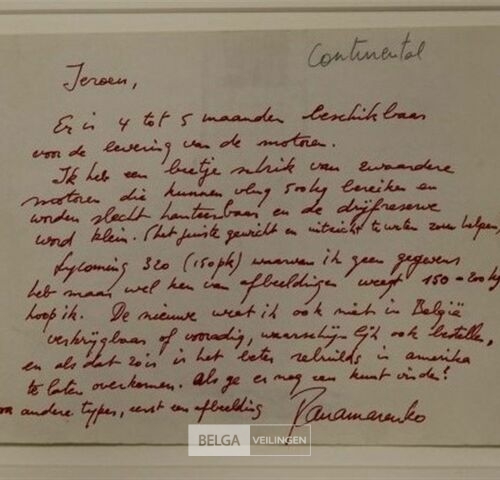 Continental
Jeroen,
Er is 4 tot 5 maanden beschikbaar
voor de levering van de motoren.
Ik heb een beetje schrik van zwaardere
motoren die kunnen vlug 500kg bereiken en
worden slecht hanteerbaar en de drijfreserve
word klein. (het juiste gewicht en uitzicht te weten zou helpen)
Lycoming 320 (150pk) waarvan ik geen gegevens
heb maar wel ken van afbeeldingen weegt 150-200kg
hoop ik. De nieuwe weet ik ook niet in België
verkrijgbaar of voorradig, waarschijnlijk ook bestellen,
en als dat zo is is het beter rebuilds in amerika
te laten overkomen. Als ge er nog een kunt vinden!
andere types, eerst een afbeelding
Panamarenko
BELGA VEILINGEN